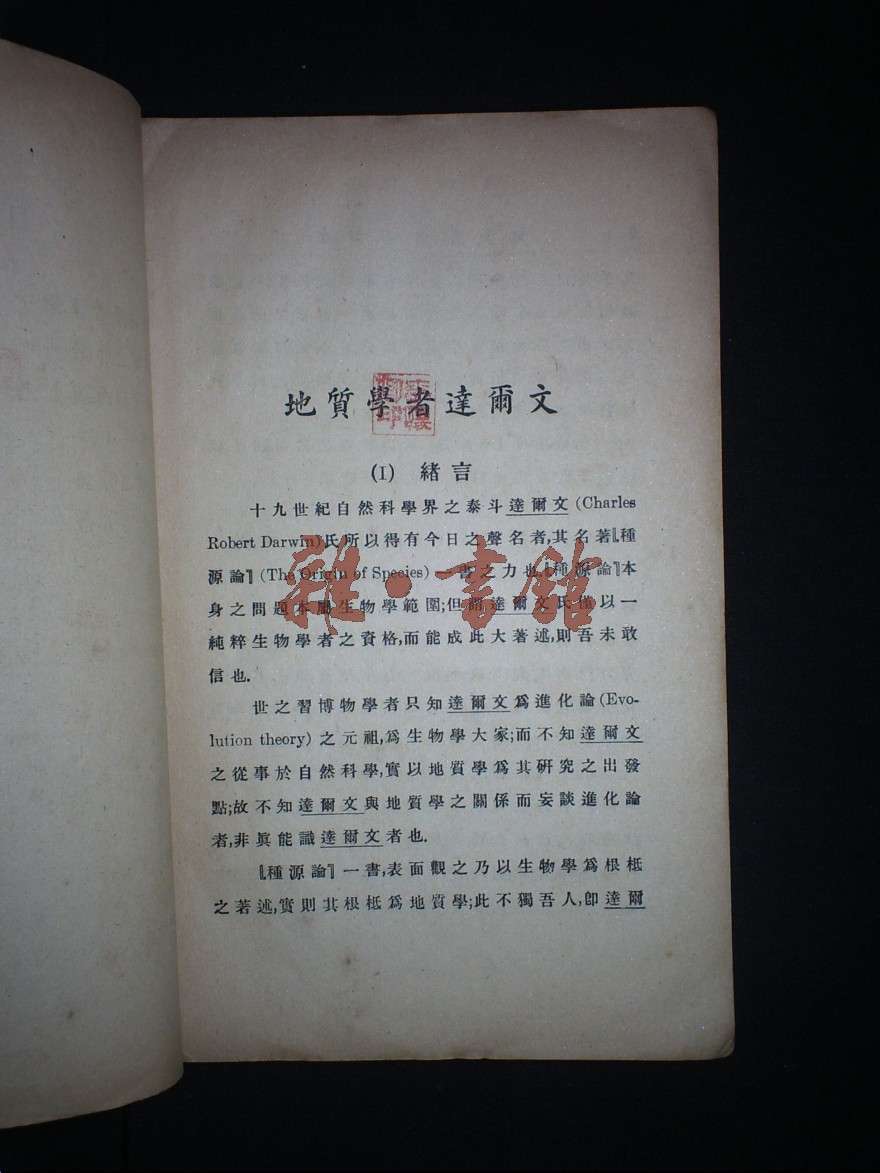 地質學者達爾文
(I) 緒言
十九世紀自然科學界之泰斗達爾文(Charles
Robert Darwin)氏所以得有今日之聲名者,其名著『種
源論』(The Origin of Species)一書之力也.『種源論』本
身之問題本屬生物學範圍;但謂達爾文氏僅以一
純粹生物學者之資格,而能成此大著述,則吾未敢
信也.
世之習博物學者只知達爾文爲進化論(Evo-
lution theory)之元祖,爲生物學大家;而不知達爾文
之從事於自然科學,實以地質學爲其研究之出發
點;故不知達爾文與地質學之關係而妄談進化論
者,非眞能識達爾文者也.
『種源論』一書,表面觀之乃以生物學爲根柢
之著述,實則其根柢爲地質學;此不獨吾人,卽達爾
雜·書館